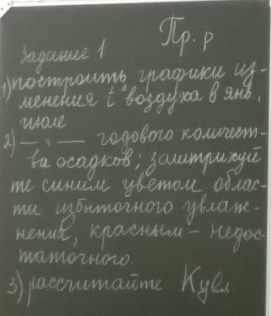 Пр. р
Задание 1
1) построить графики из-
менения t° воздуха в янв.,
июле
2) — " — годового количест-
ва осадков; заштрихуй
те синим цветом облас-
ти избыточного увлаж-
нения, красным – недос-
таточного.
3) рассчитайте Кувл.